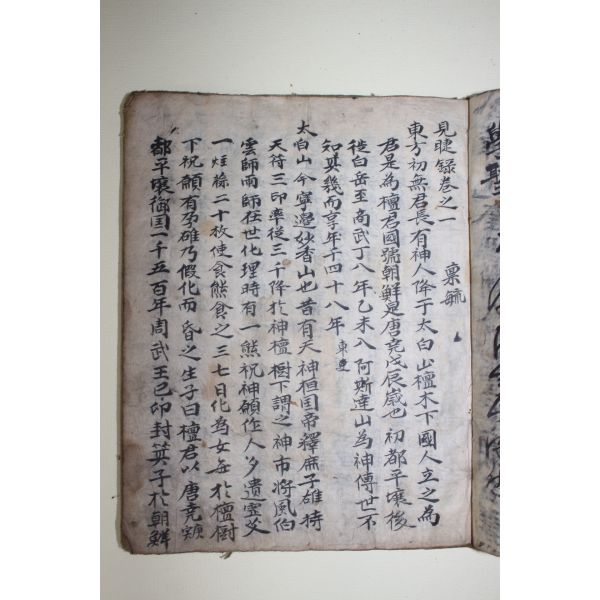 見睫錄卷之一
稟毓
東方初無君長有神人降于太白山檀木下國人立之為
君是為檀君國號朝鮮是唐堯戊辰歲也初都平壤後
徙白岳至商武丁八年乙未入阿斯達山為神傳世不
知其幾而享年千四十八年 東史
太白山今寧邊妙香山也昔有天神桓国帝釋庶子雄持
天符三印率從三千降於神檀樹下謂之神市將風伯
雲師雨師在世化理時有一熊祝神願作人身遺霊艾
一炷蒜二十枚使食熊食之三七日化為女每於檀樹
下祝願有孕雄乃假化而昏之生子曰檀君以唐堯
都平壤御国一千五百年周武王己卯封箕子於朝鮮